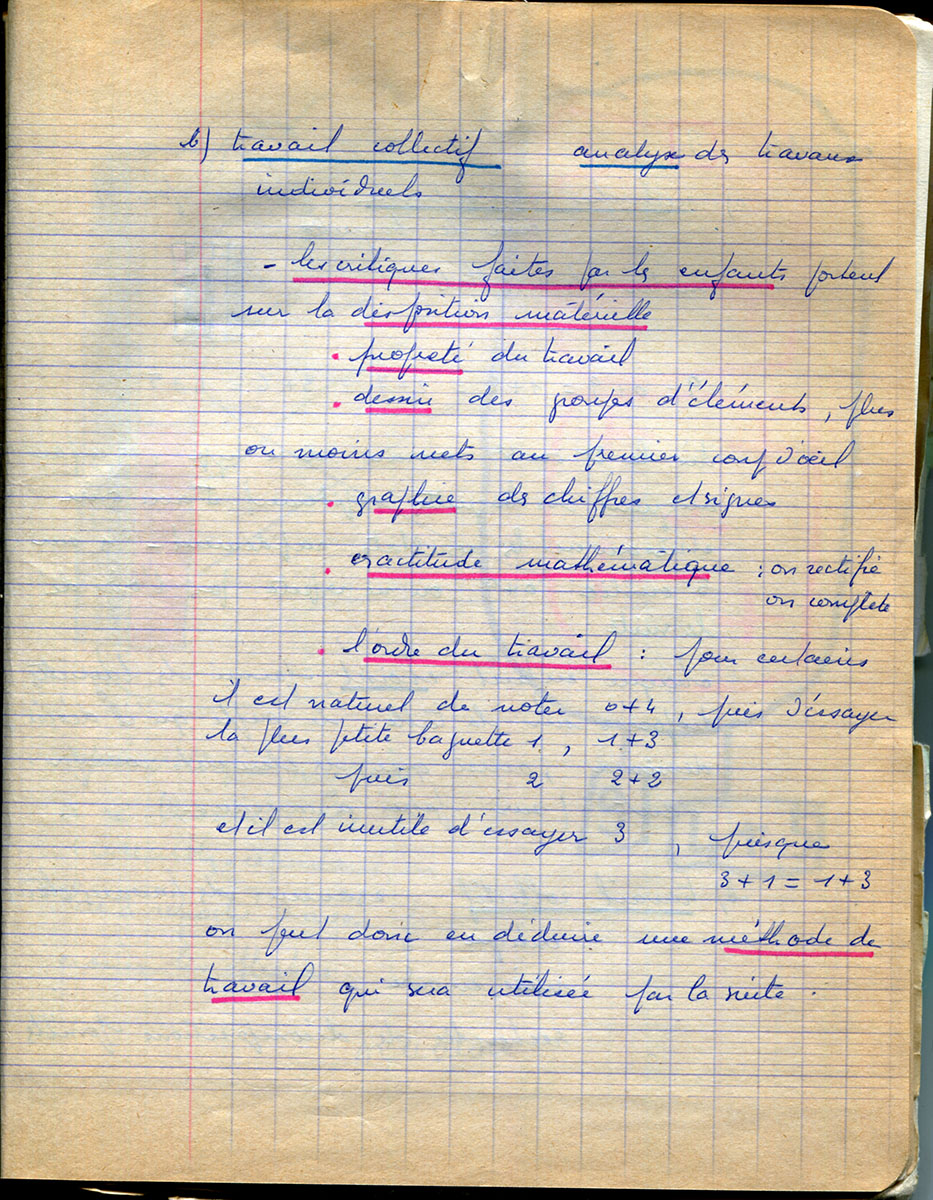 b) travail collectif analyse des travaux
individuels
- les critiques faites par les enfants portent
sur la disposition matérielle
. propreté du travail
. dessin des groupes d'éléments, plus
ou moins nets au premier coup d'œil
. graphie des chiffres et signes
. exactitude mathématique : on rectifie
on complète
. l'ordre du travail : pour certains
il est naturel de noter 0+4, puis d'essayer
la plus petite baguette 1, 1+3
puis 2 2+2
et il est inutile d'essayer 3, puisque
3+1 = 1+3
on peut donc en déduire une méthode de
travail qui sera utilisée par la suite.